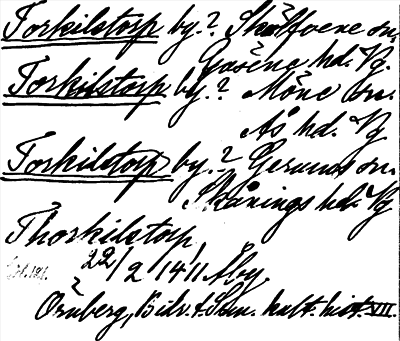 Torkilstorp by.? Skölfvene sn.
Gäsene hd. Vg.
Torkilstorp by.? Möne sn.
Ås hd. Vg
Torkilstorp by.? Gerums sn.
Skånings hd. Vg
Thorkilstorp,
22/2 1411 Åby.
Örnberg, Bidr. t. Sven. kult. hist. VII.